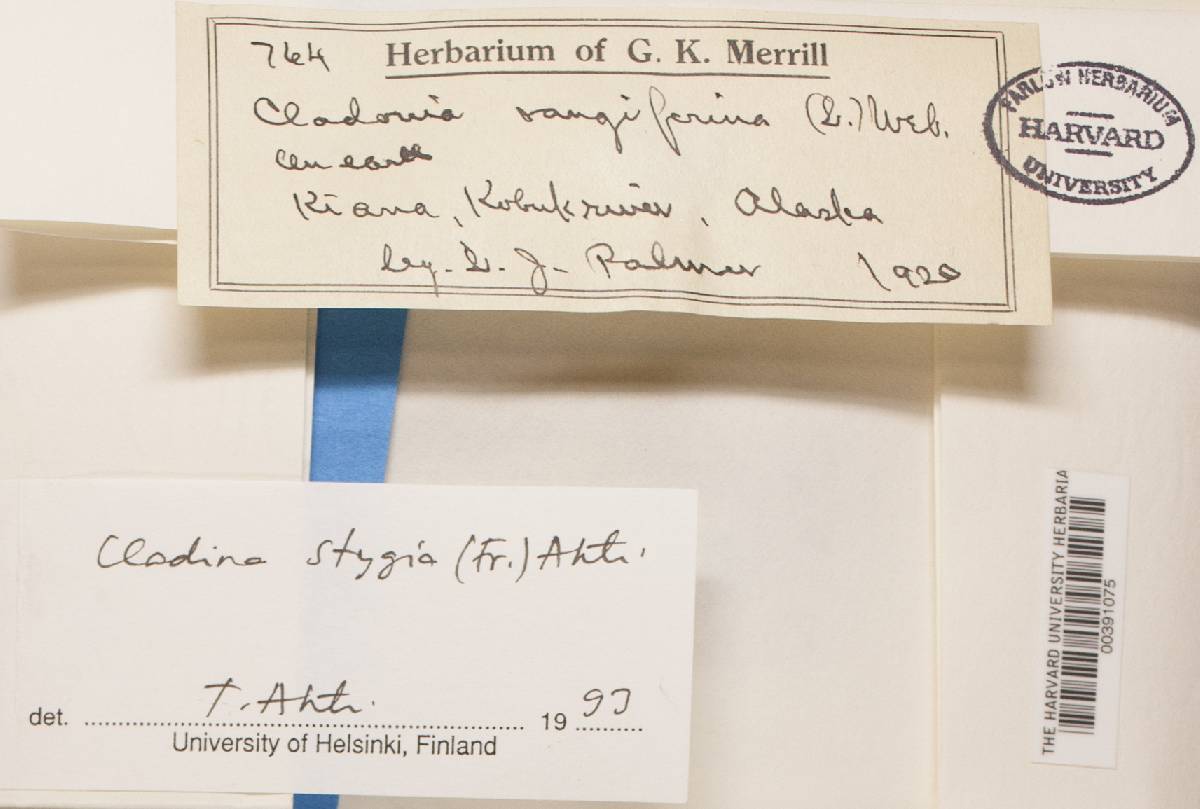 764 Herbarium of G. K. Merrill
Cladonia rangiferina (L.) Web.
on earth
Kiana, Kobuk river, Alaska
leg. L. J. Palmer 1920
FARLOW HERBARIUM
HARVARD
UNIVERSITY
Cladina stygia (Fr.) Ahti.
T. Ahti.
det. 19 97
University of Helsinki, Finland
THE HARVARD UNIVERSITY HERBARIA
00391075